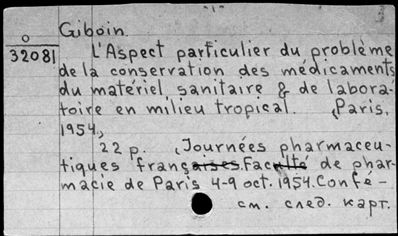 Giboin.
O
32081
L'Aspect particulier du problème
de la conservation des médicaments
du matériel sanitaire & de labora-
toire en milieu tropical. Paris,
1954,
22 p. Journées pharmaceu-
tiques françaises. Faculté de phar-
macie de Paris 4-9 oct. 1954. Confé-
см. след. карт.